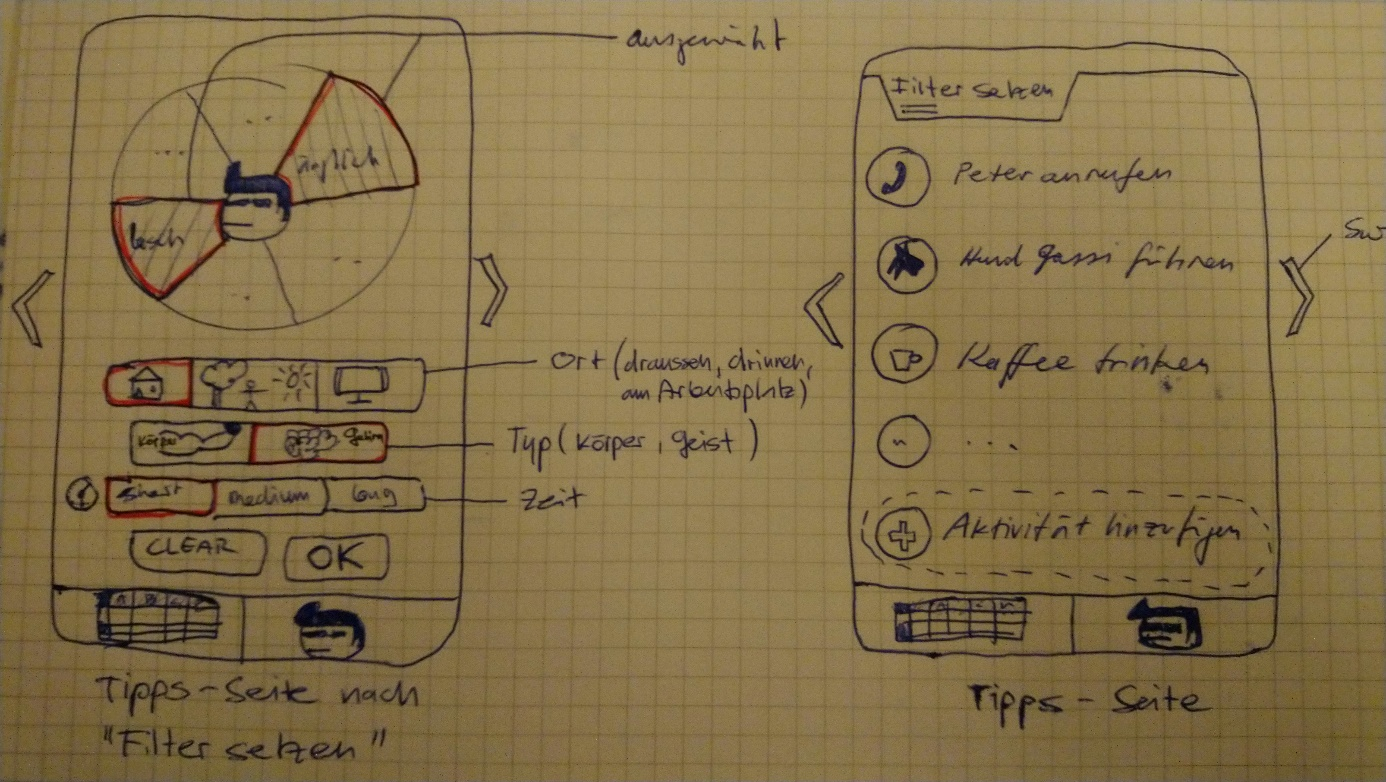 ausgewählt
...
lasch
Ort (draussen, drinnen,
am Arbeitsplatz)
Körper
Gehirn
Typ (körper, geist)
short
medium
long
Zeit
CLEAR
OK
Tipps-Seite nach
"Filter setzen"
Filter setzen
Peter anrufen
Hund Gassi führen
Kaffee trinken
...
Aktivität hinzufügen
Tipps - Seite